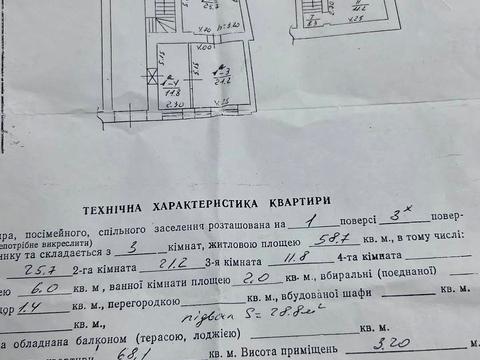 25.7
h=3.20
4.00
5.15
5.15
1-4
11.8
1-3
21.2
2.30
4.25
ТЕХНІЧНА ХАРАКТЕРИСТИКА КВАРТИРИ
ира, посімейного, спільного заселення розташована на 1 поверсі 3х повер-
непотрібне викреслити)
инку та складається з 3 кімнат, житловою площею 58.7 кв. м., в тому числі:
25.7 2-га кімната 21.2 3-я кімната 11.8 4-та кімната
ею 6.0 кв. м, ванної кімнати площею 2.0 кв. м., вбиральні (поєднаної)
дор 1.4 кв. м., перегородкою кв. м., вбудованої шафи
кв. м., підвал S=28.8м² кв. м.
а обладнана балконом (терасою, лоджією) кв. м.
квартири 68,1 кв. м. Висота приміщень 3.20 м.